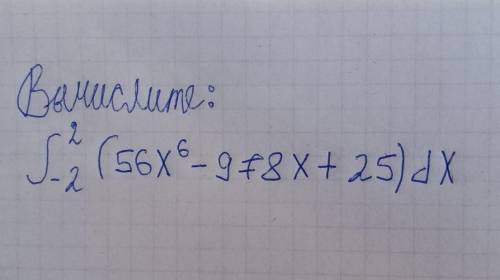 Вычислите:
∫₋₂² (56x⁶ - 978x + 25)dx